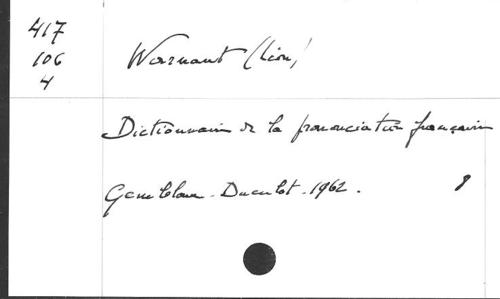 417
106
4
Warnant (Léon)
Dictionnaire de la prononciation française
Gembloux - Duculot - 1962.
8